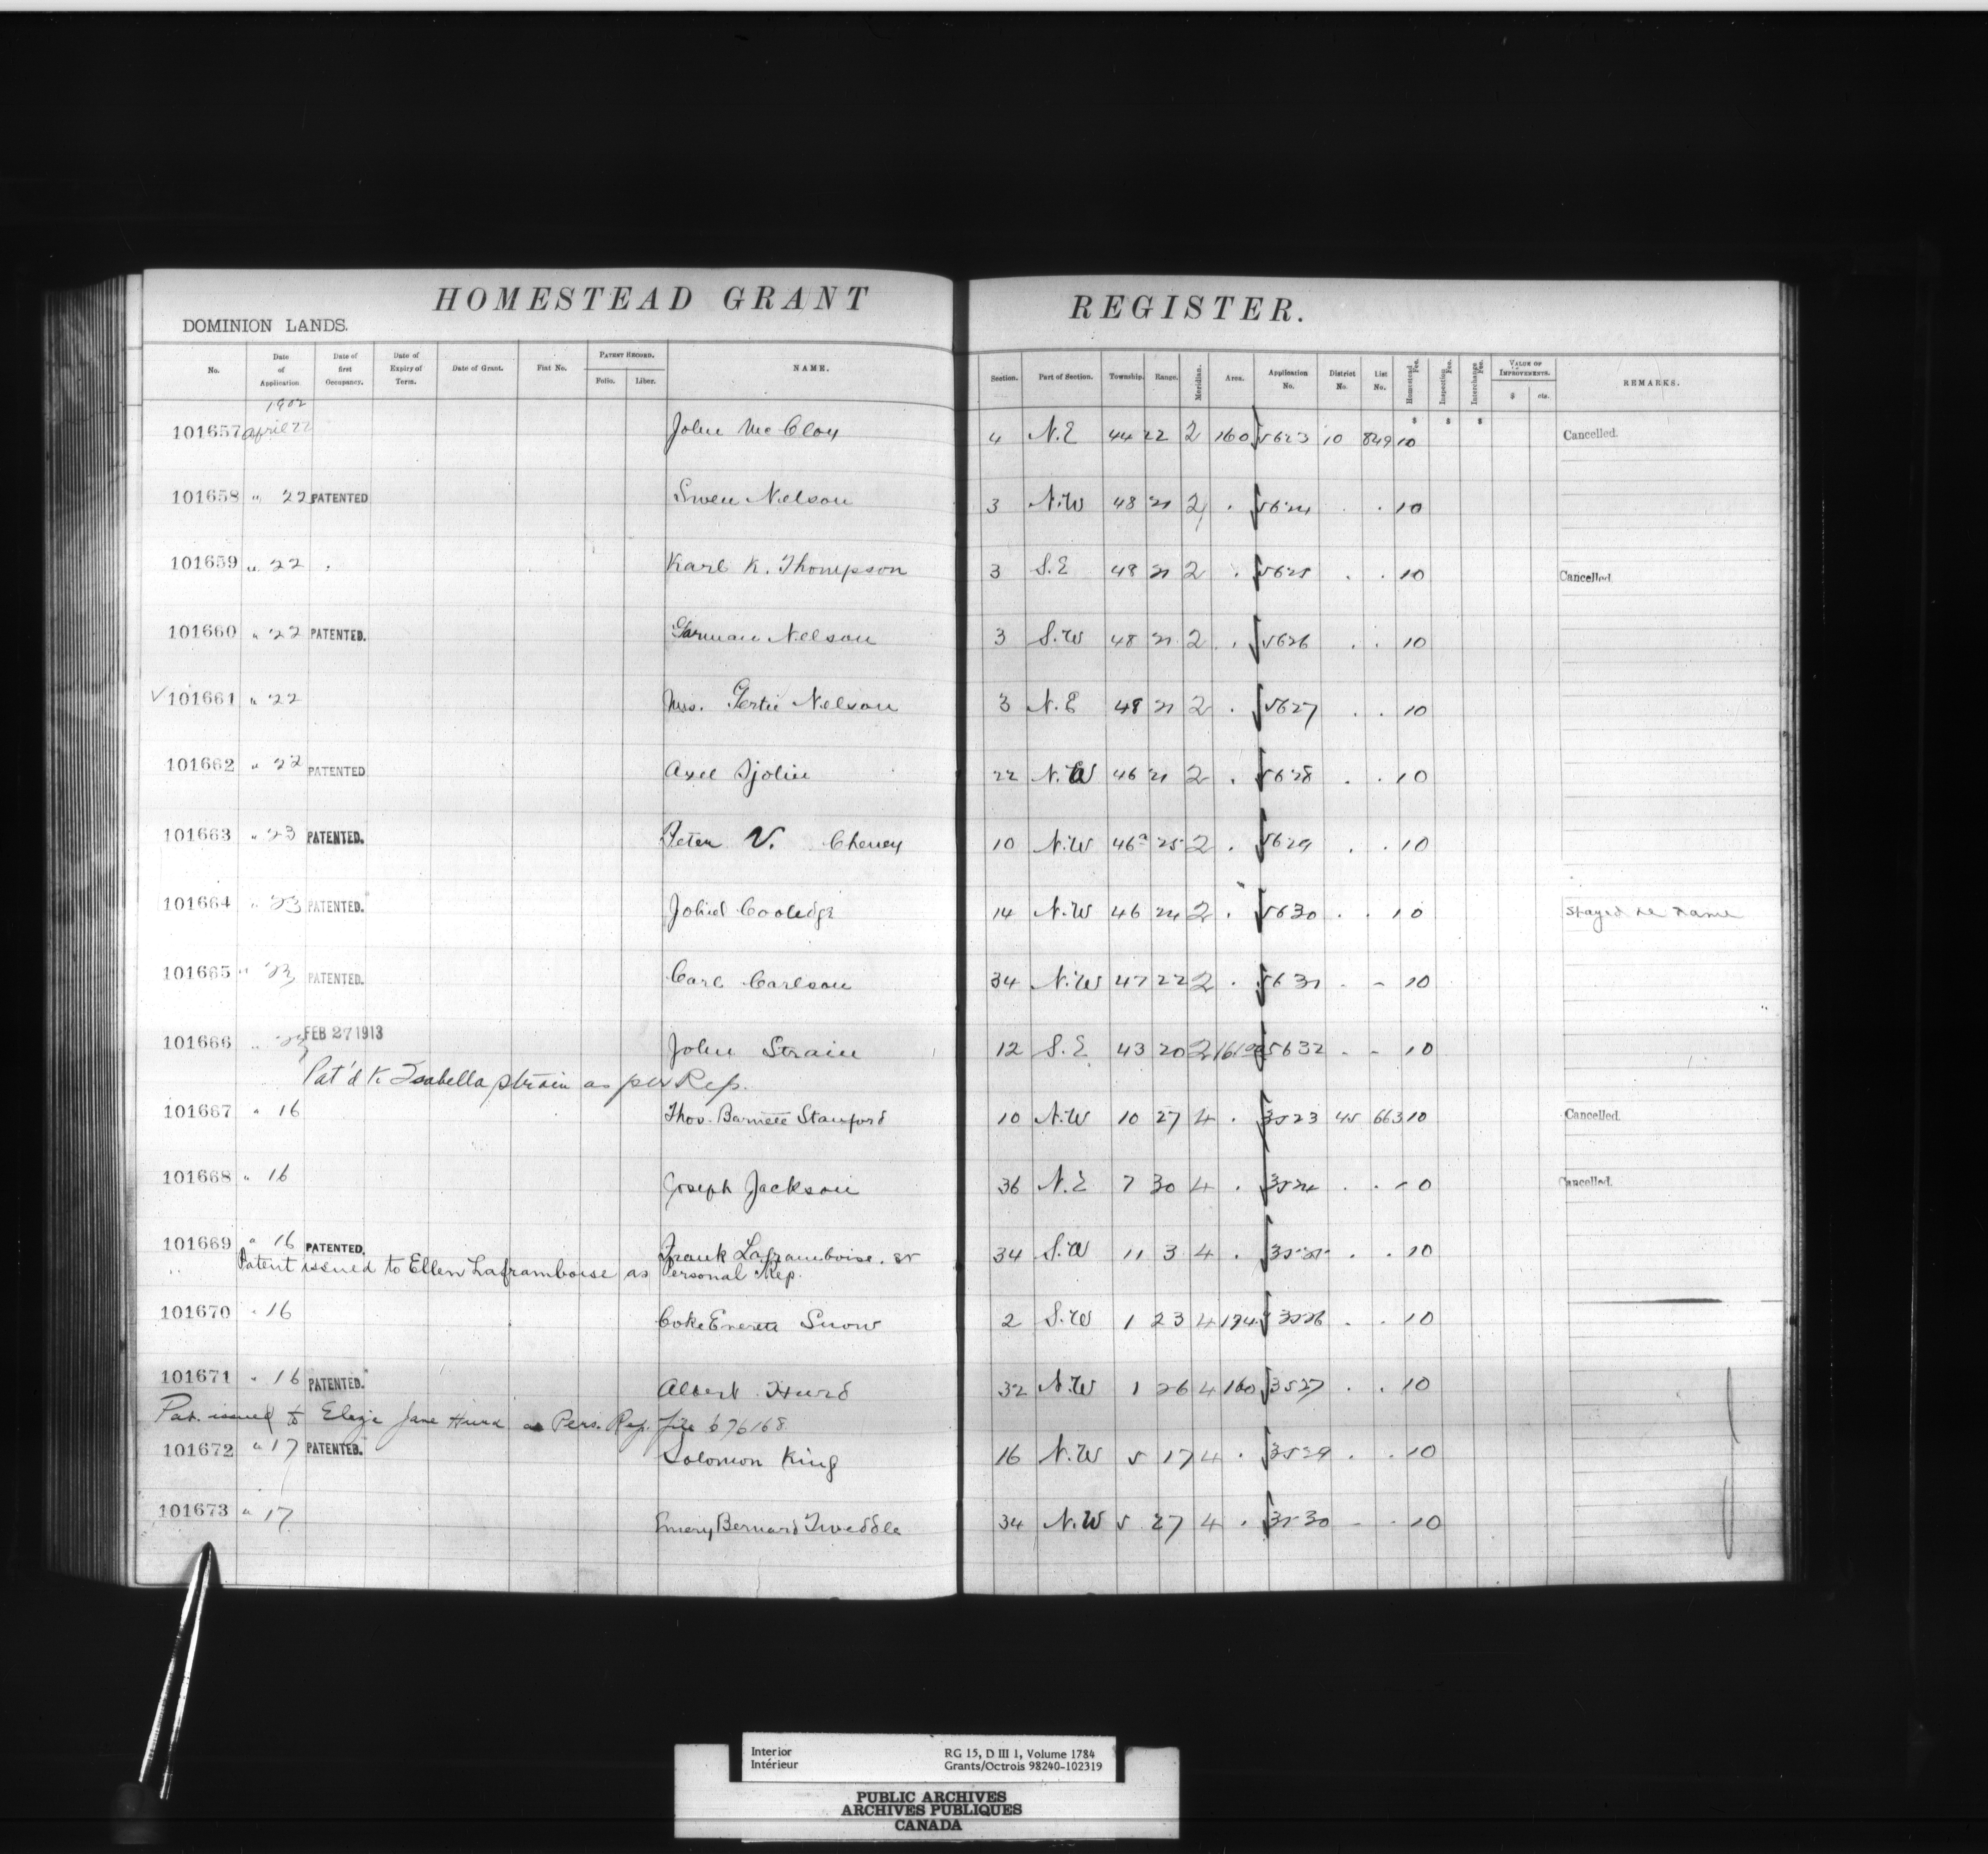 HOMESTEAD GRANT REGISTER.
DOMINION LANDS.
No. Date of Application. Date of first Occupancy. Date of Expiry of Term. Date of Grant. Fiat No. PATENT RECORD. Folio. Liber. NAME. Section. Part of Section. Township. Range. Meridian. Area. Application No. District No. List No. Homestead Fee. Inspection Fee. Interchange Fee. VALUE OF IMPROVEMENTS. $ cts. REMARKS.
1902
101657 April 22 John McCloy 4 N.E 44 22 2 160 5623 10 849 10 Cancelled.
101658 " 22 PATENTED Swen Nelson 3 N.W 48 21 2 . 5624 . . 10
101659 " 22 Karl K. Thompson 3 S.E 48 21 2 . 5625 . . 10 Cancelled.
101660 " 22 PATENTED. Nelson 3 S.W 48 21 2 . 5626 . . 10
101661 " 22 Mrs. Gertie Nelson 3 N.E 48 21 2 . 5627 . . 10
101662 " 22 PATENTED Axel Sjolin 22 N.W 46 21 2 . 5628 . . 10
101663 " 23 PATENTED. Peter V. Cheney 10 N.W 46a 25 2 . 5629 . . 10
101664 " 23 PATENTED. Cooledge 14 N.W 46 24 2 . 5630 . . 10 Stayed re name
101665 " 23 PATENTED. Carl Carlson 34 N.W 47 22 2 . 5631 - - 10
101666 " 23 FEB 27 1913 John Strain 12 S.E 43 20 2 5632 - - 10
Pat'd to Isabella Strain as per Rep.
101667 " 16 Thos. Barnett Stanford 10 N.W 10 27 4 . 3523 45 663 10 Cancelled.
101668 " 16 Joseph Jackson 36 N.E 7 30 4 . 3524 . . 10 Cancelled.
101669 " 16 PATENTED. Frank Laframboise. sr 34 S.W 11 3 4 . 3525 . . 10
" Patent issued to Ellen Laframboise as Personal Rep.
101670 " 16 Coke Everett Snow 2 S.W 1 23 4 194 3526 . . 10
101671 " 16 PATENTED. Albert Hurd 32 N.W 1 26 4 160 3527 . . 10
Pat. issued to Eliza Jane Hurd as Pers. Rep. file 676168
101672 " 17 PATENTED. Solomon King 16 N.W 5 17 4 . 3529 . . 10
101673 " 17 Emery Bernard Tweddle 34 N.W 5 27 4 . 3530 - - 10
Interior RG 15, D III 1, Volume 1784
Intérieur Grants/Octrois 98240-102319
PUBLIC ARCHIVES
ARCHIVES PUBLIQUES
CANADA